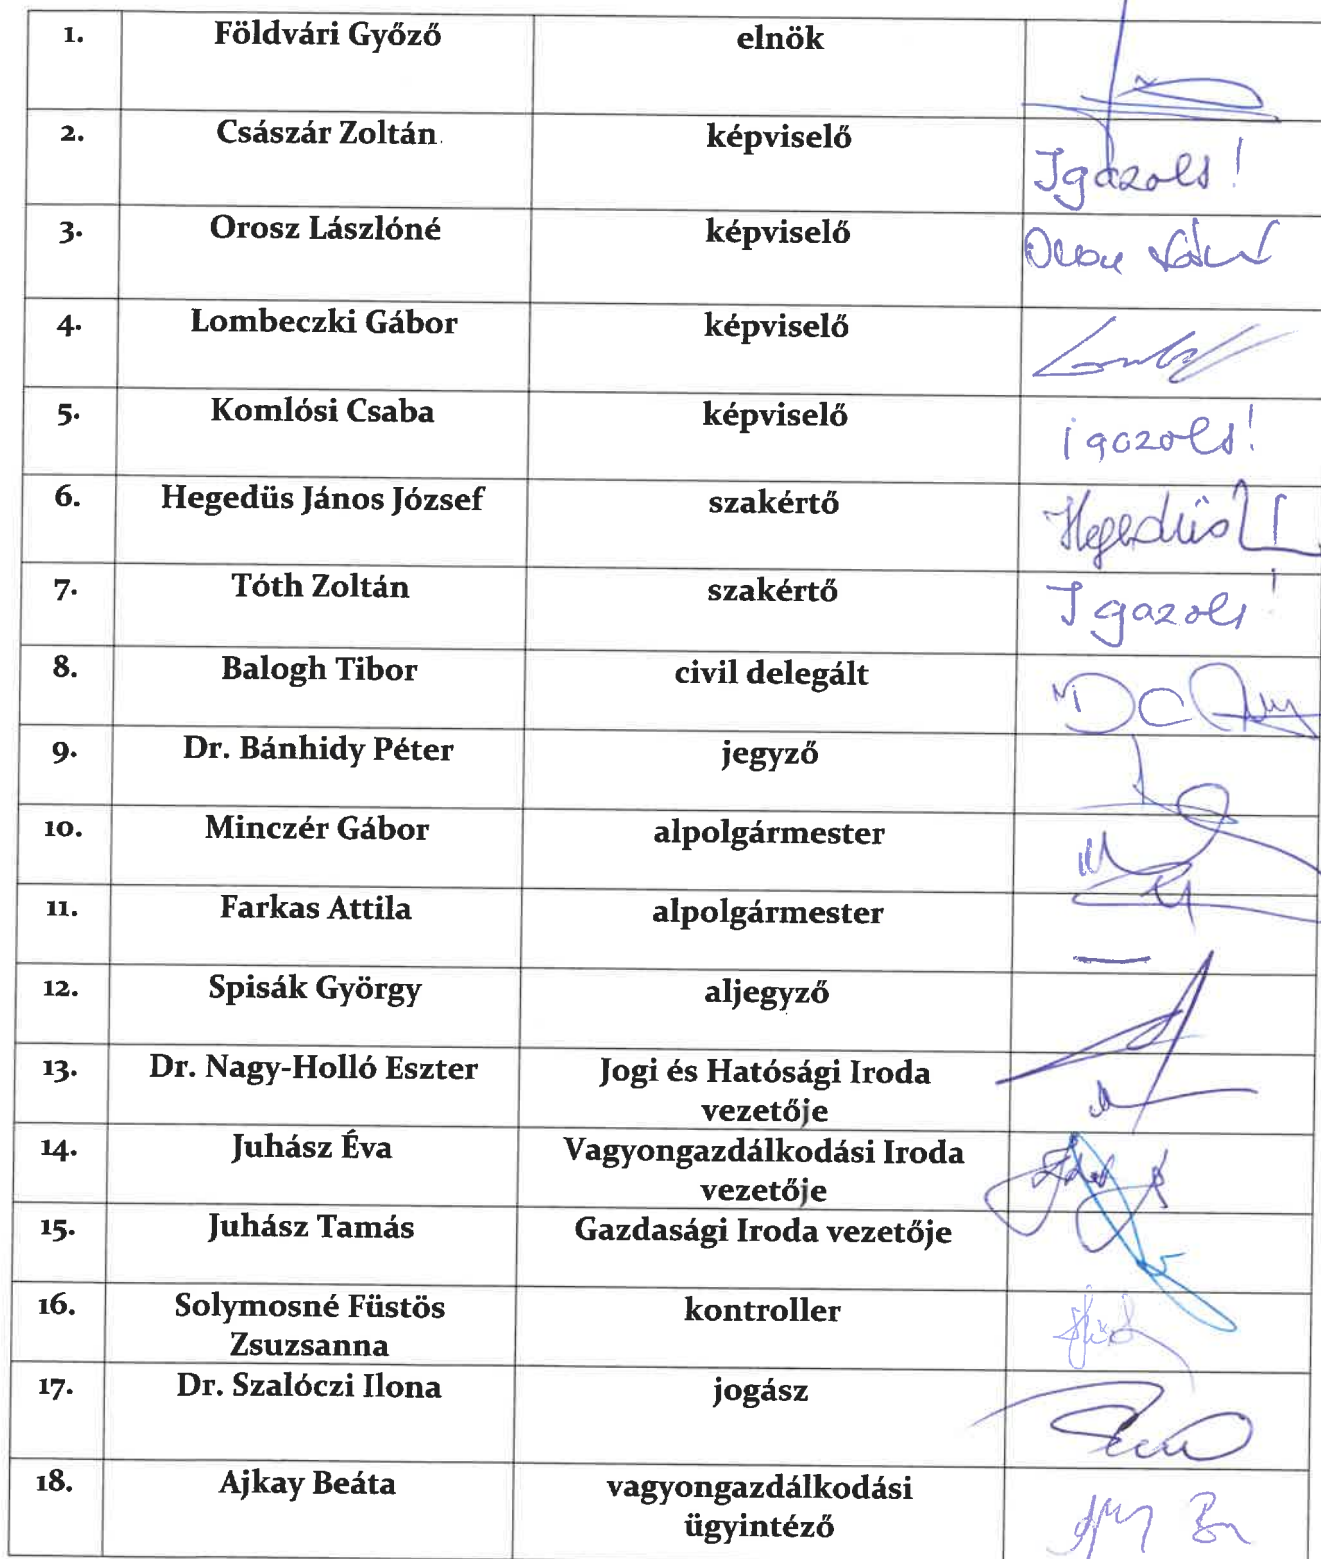 1. Földvári Győző elnök
2. Császár Zoltán képviselő Igazolt!
3. Orosz Lászlóné képviselő
4. Lombeczki Gábor képviselő
5. Komlósi Csaba képviselő igazolt!
6. Hegedüs János József szakértő Hegedüs
7. Tóth Zoltán szakértő Igazolt!
8. Balogh Tibor civil delegált
9. Dr. Bánhidy Péter jegyző
10. Minczér Gábor alpolgármester
11. Farkas Attila alpolgármester —
12. Spisák György aljegyző
13. Dr. Nagy-Holló Eszter Jogi és Hatósági Iroda
vezetője
14. Juhász Éva Vagyongazdálkodási Iroda
vezetője
15. Juhász Tamás Gazdasági Iroda vezetője
16. Solymosné Füstös kontroller
Zsuzsanna
17. Dr. Szalóczi Ilona jogász
18. Ajkay Beáta vagyongazdálkodási
ügyintéző